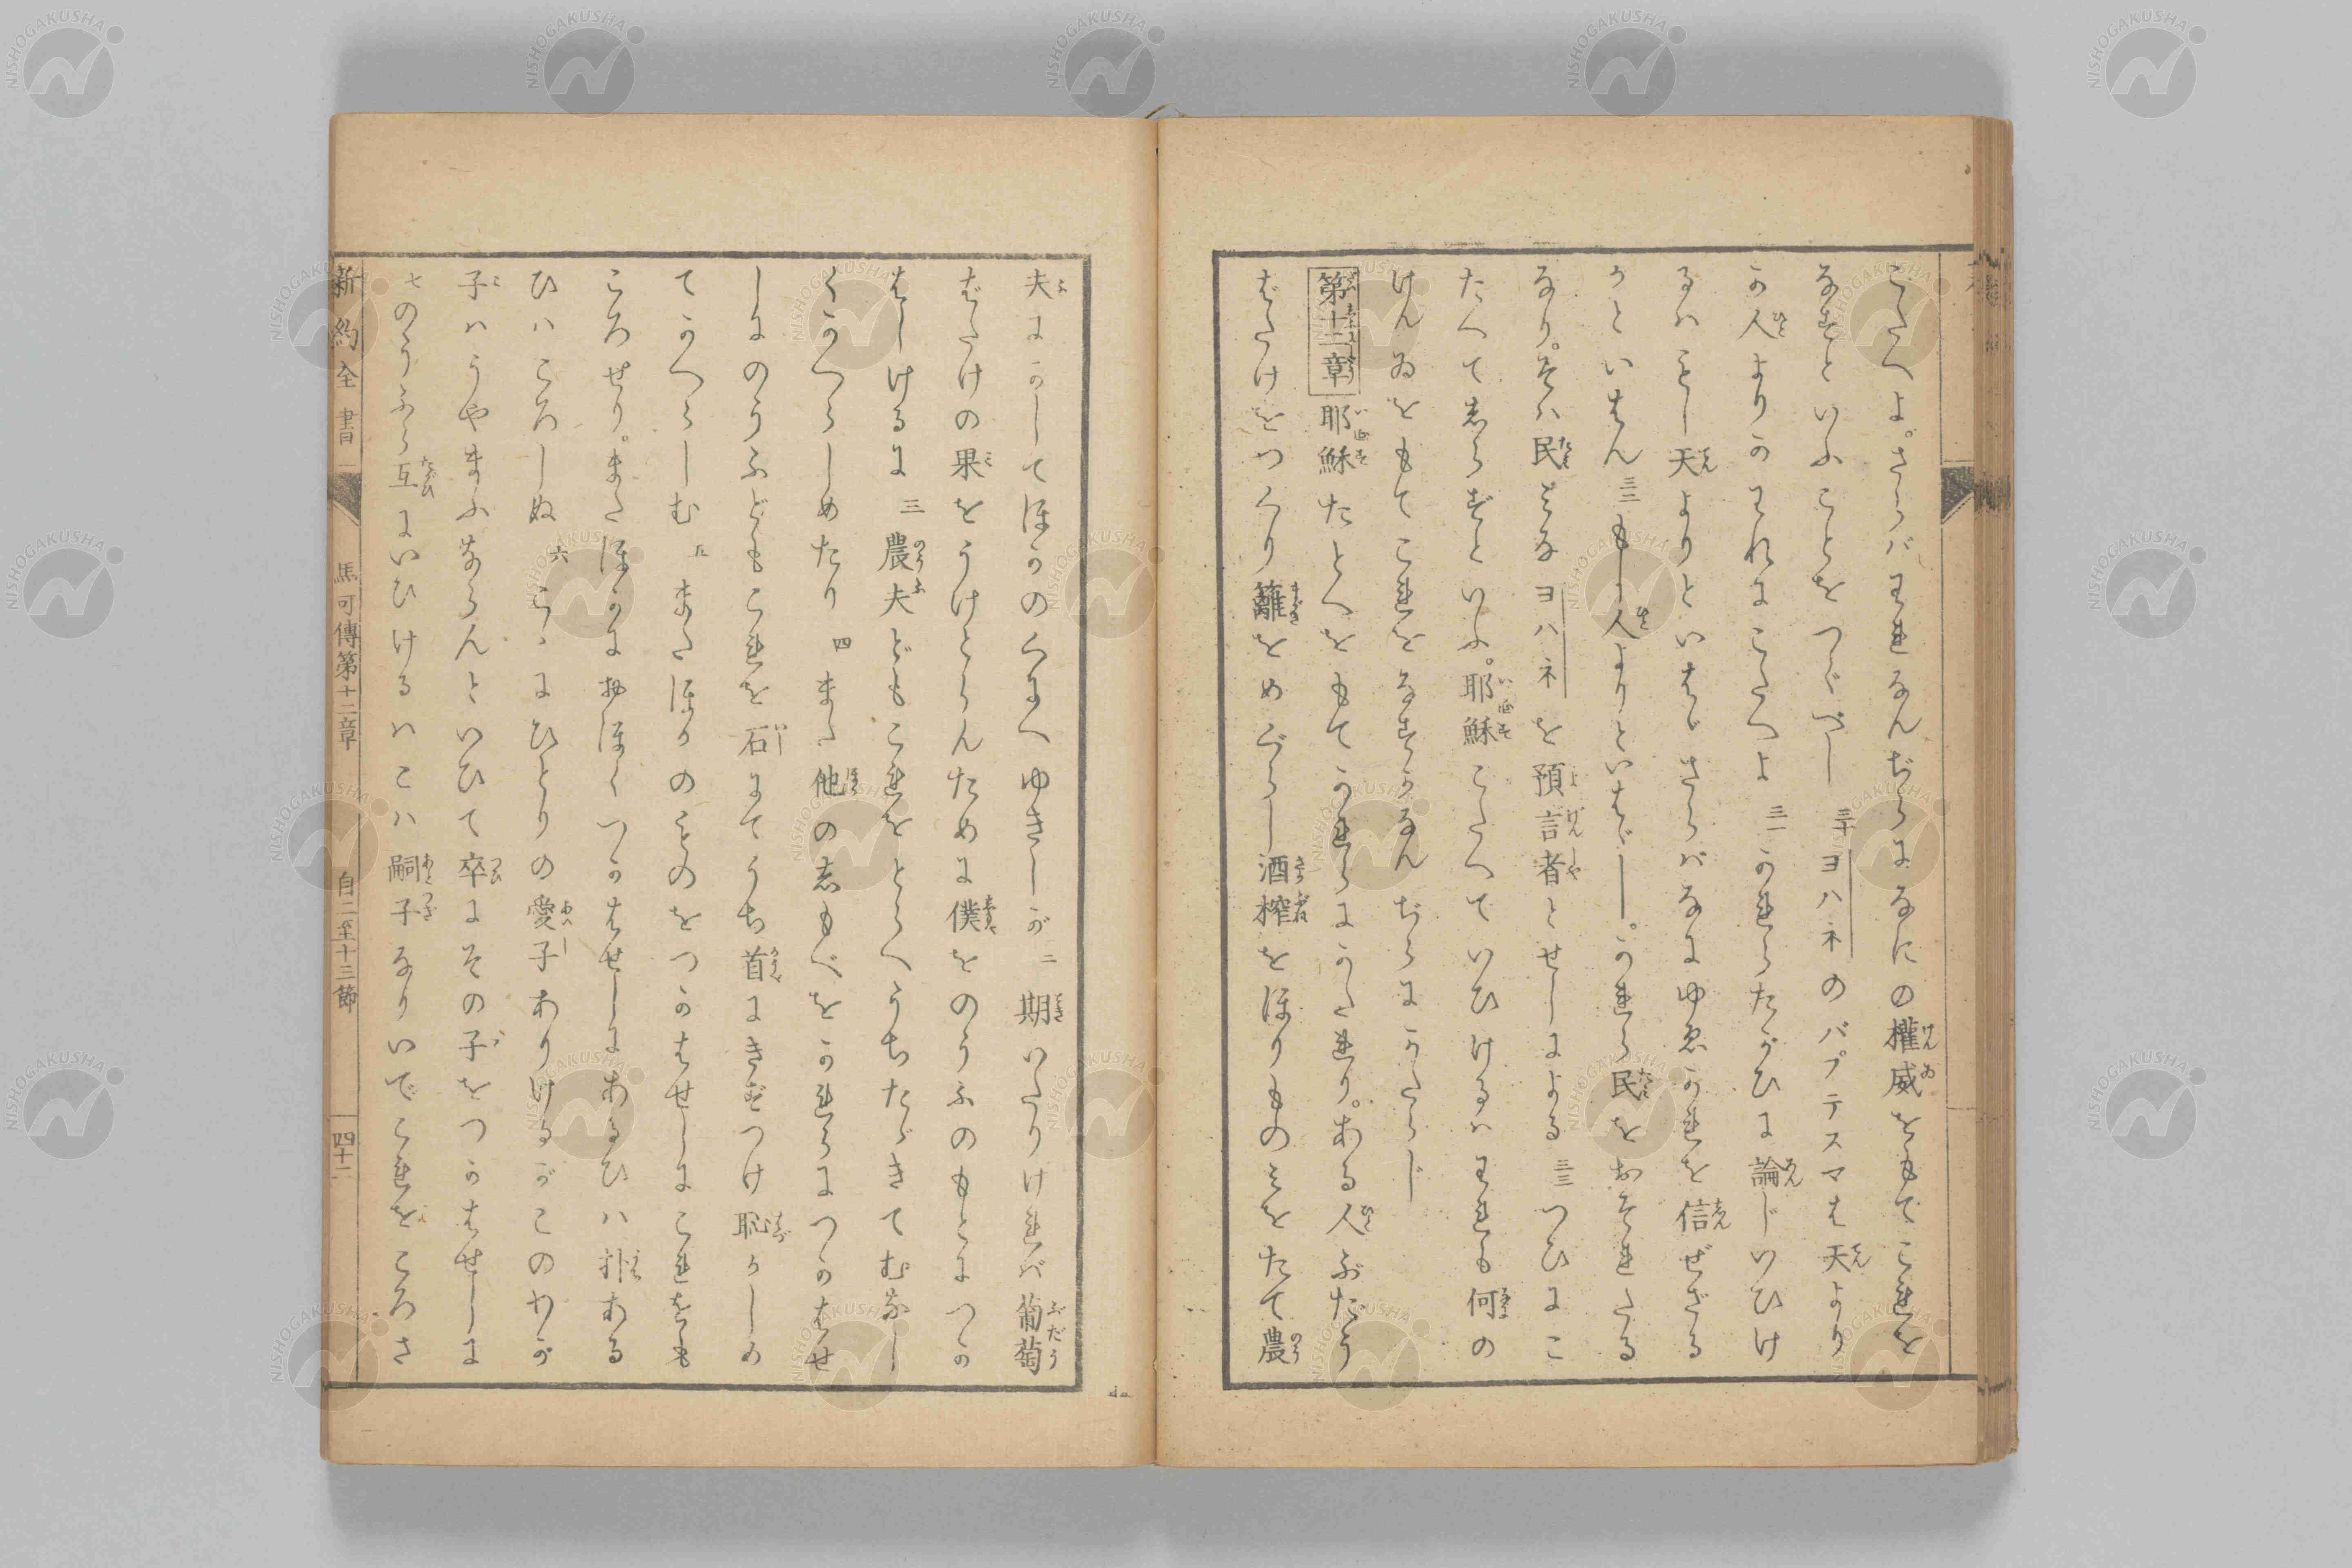 こたへよ。さらバわれなんぢらになにの權威をもてこれを
なすといふことをつぐべし 三十 ヨハネのバプテスマは天より
か人よりかわれにこたへよ 三一 かれらたがひに論じいひけ
るハもし天よりといはゞさらバなにゆゑかれを信ぜざる
かといはん 三二 もし人よりといはゞ―。かれら民をおそれたる
なり。そハ民みなヨハネを預言者とせしによる 三三 つひにこ
たへてしらずといふ。耶穌こたへていひけるハわれも何の
けんゐをもてこれをなすかなんぢらにかたらじ
第十二章 耶穌たとへをもてかれらにかたれり。ある人ぶだう
ばたけをつくり籬をめぐらし酒榨をほりものみをたて農
夫にかしてほかのくにへゆきしが 二 期いたりけれバ葡萄
ばたけの果をうけとらんために僕をのうふのもとにつか
はしけるに 三 農夫どもこれをとらへうちたゝきてむなし
くかへらしめたり 四 また他のしもべをかれらにつかはせ
しにのうふどもこれを石にてうち首にきずつけ恥かしめ
てかへらしむ 五 またほかのものをつかはせしにこれをも
ころせり。またほかにおほくつかはせしにあるひハ扑ある
ひハころしぬ 六 こゝにひとりの愛子ありけるがこのわが
子ハうやまふならんといひて卒にその子をつかはせしに
七 のうふら互にいひけるハこハ嗣子なりいでこれをころさ
新約全書 馬可傳第十二章 自二至十三節 四十二